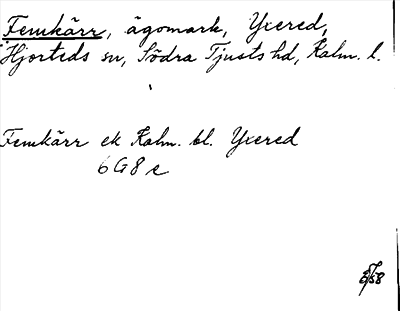 Femkärr, ägomark, Yxered,
Hjorteds sn, Södra Tjusts hd, Kalm. l.
Femkärr ek Kalm. bl. Yxered
6 G 8 e